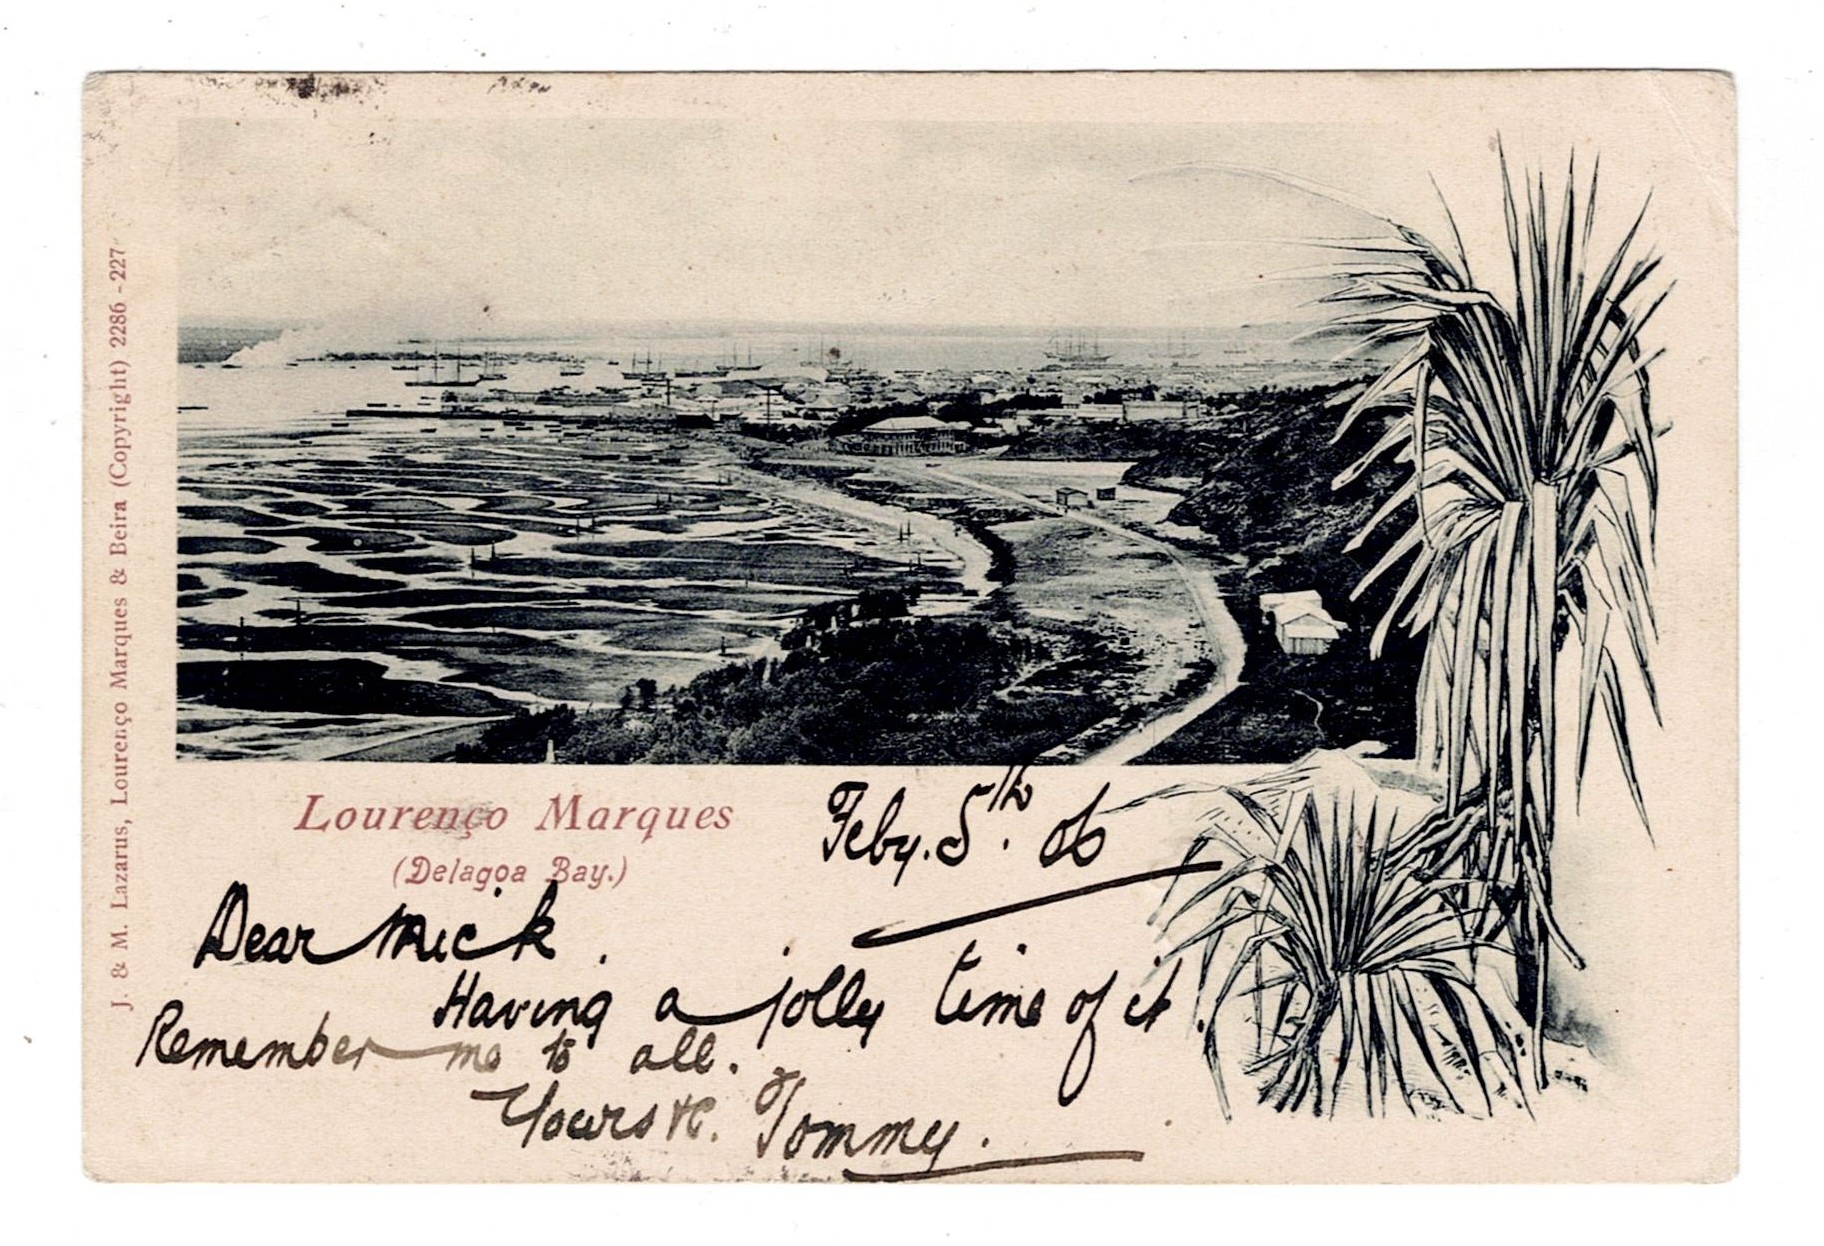 J. & M. Lazarus, Lourenço Marques & Beira (Copyright) 2286-227
Lourenço Marques
(Delagoa Bay.)
Feby. 5th. 06
Dear Mick.
Having a jolly time of it.
Remember me to all.
Yours &c. Tommy.